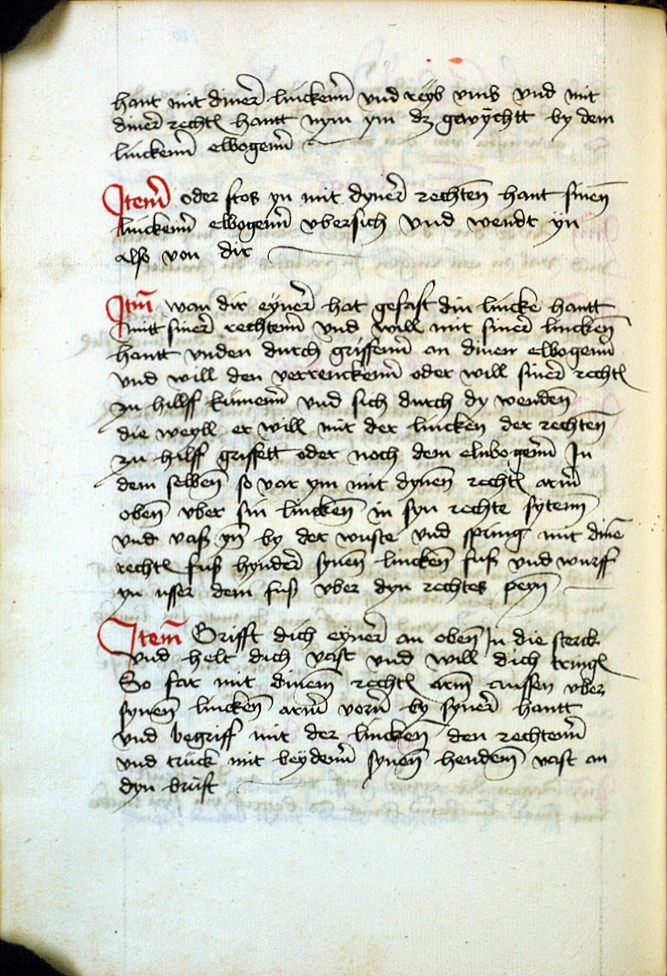 hant mit diner linckenn vnd reyb vmb vnd mit
diner recht hantt nym ym dz gewychtt by dem
linckenn elbogenn
Item oder stos yn mit dyner rechten hant sinen
linckenn elbogenn vbersich vnd wendt yn
also von dir
Itm wan dir eyner hat gefast din lincke hantt
mitt siner rechtenn vnd will mit siner lincken
hantt vnden durch griffenn an dinen elbogenn
vnd will den verrenckenn oder will siner recht
zu hilff kumenn vnd sich durch dy wenden
die weyll er will mit der lincken der rechten
zu hilff griffett oder noch dem elnbogenn In
dem selben so var ym mit dynen recht arm
oben vber sin lincken in syn rechte sytenn
vnd vaß yn by der wuste vnd spring mit dine
recht fuß hynder synen lincken fuß vnd wurff
yn usser dem fuß vber dyn rechtes peyn
Item Grifft dich eyner an oben In die sterck
vnd helt dich vast vnd will dich tring
So far mit dinem recht arm aussen vber
synen lincken arm vorn by syner hantt
vnd begriff mit der lincken den rechtenn
vnd truck mit beydenn synen henden vast an
dyn brust